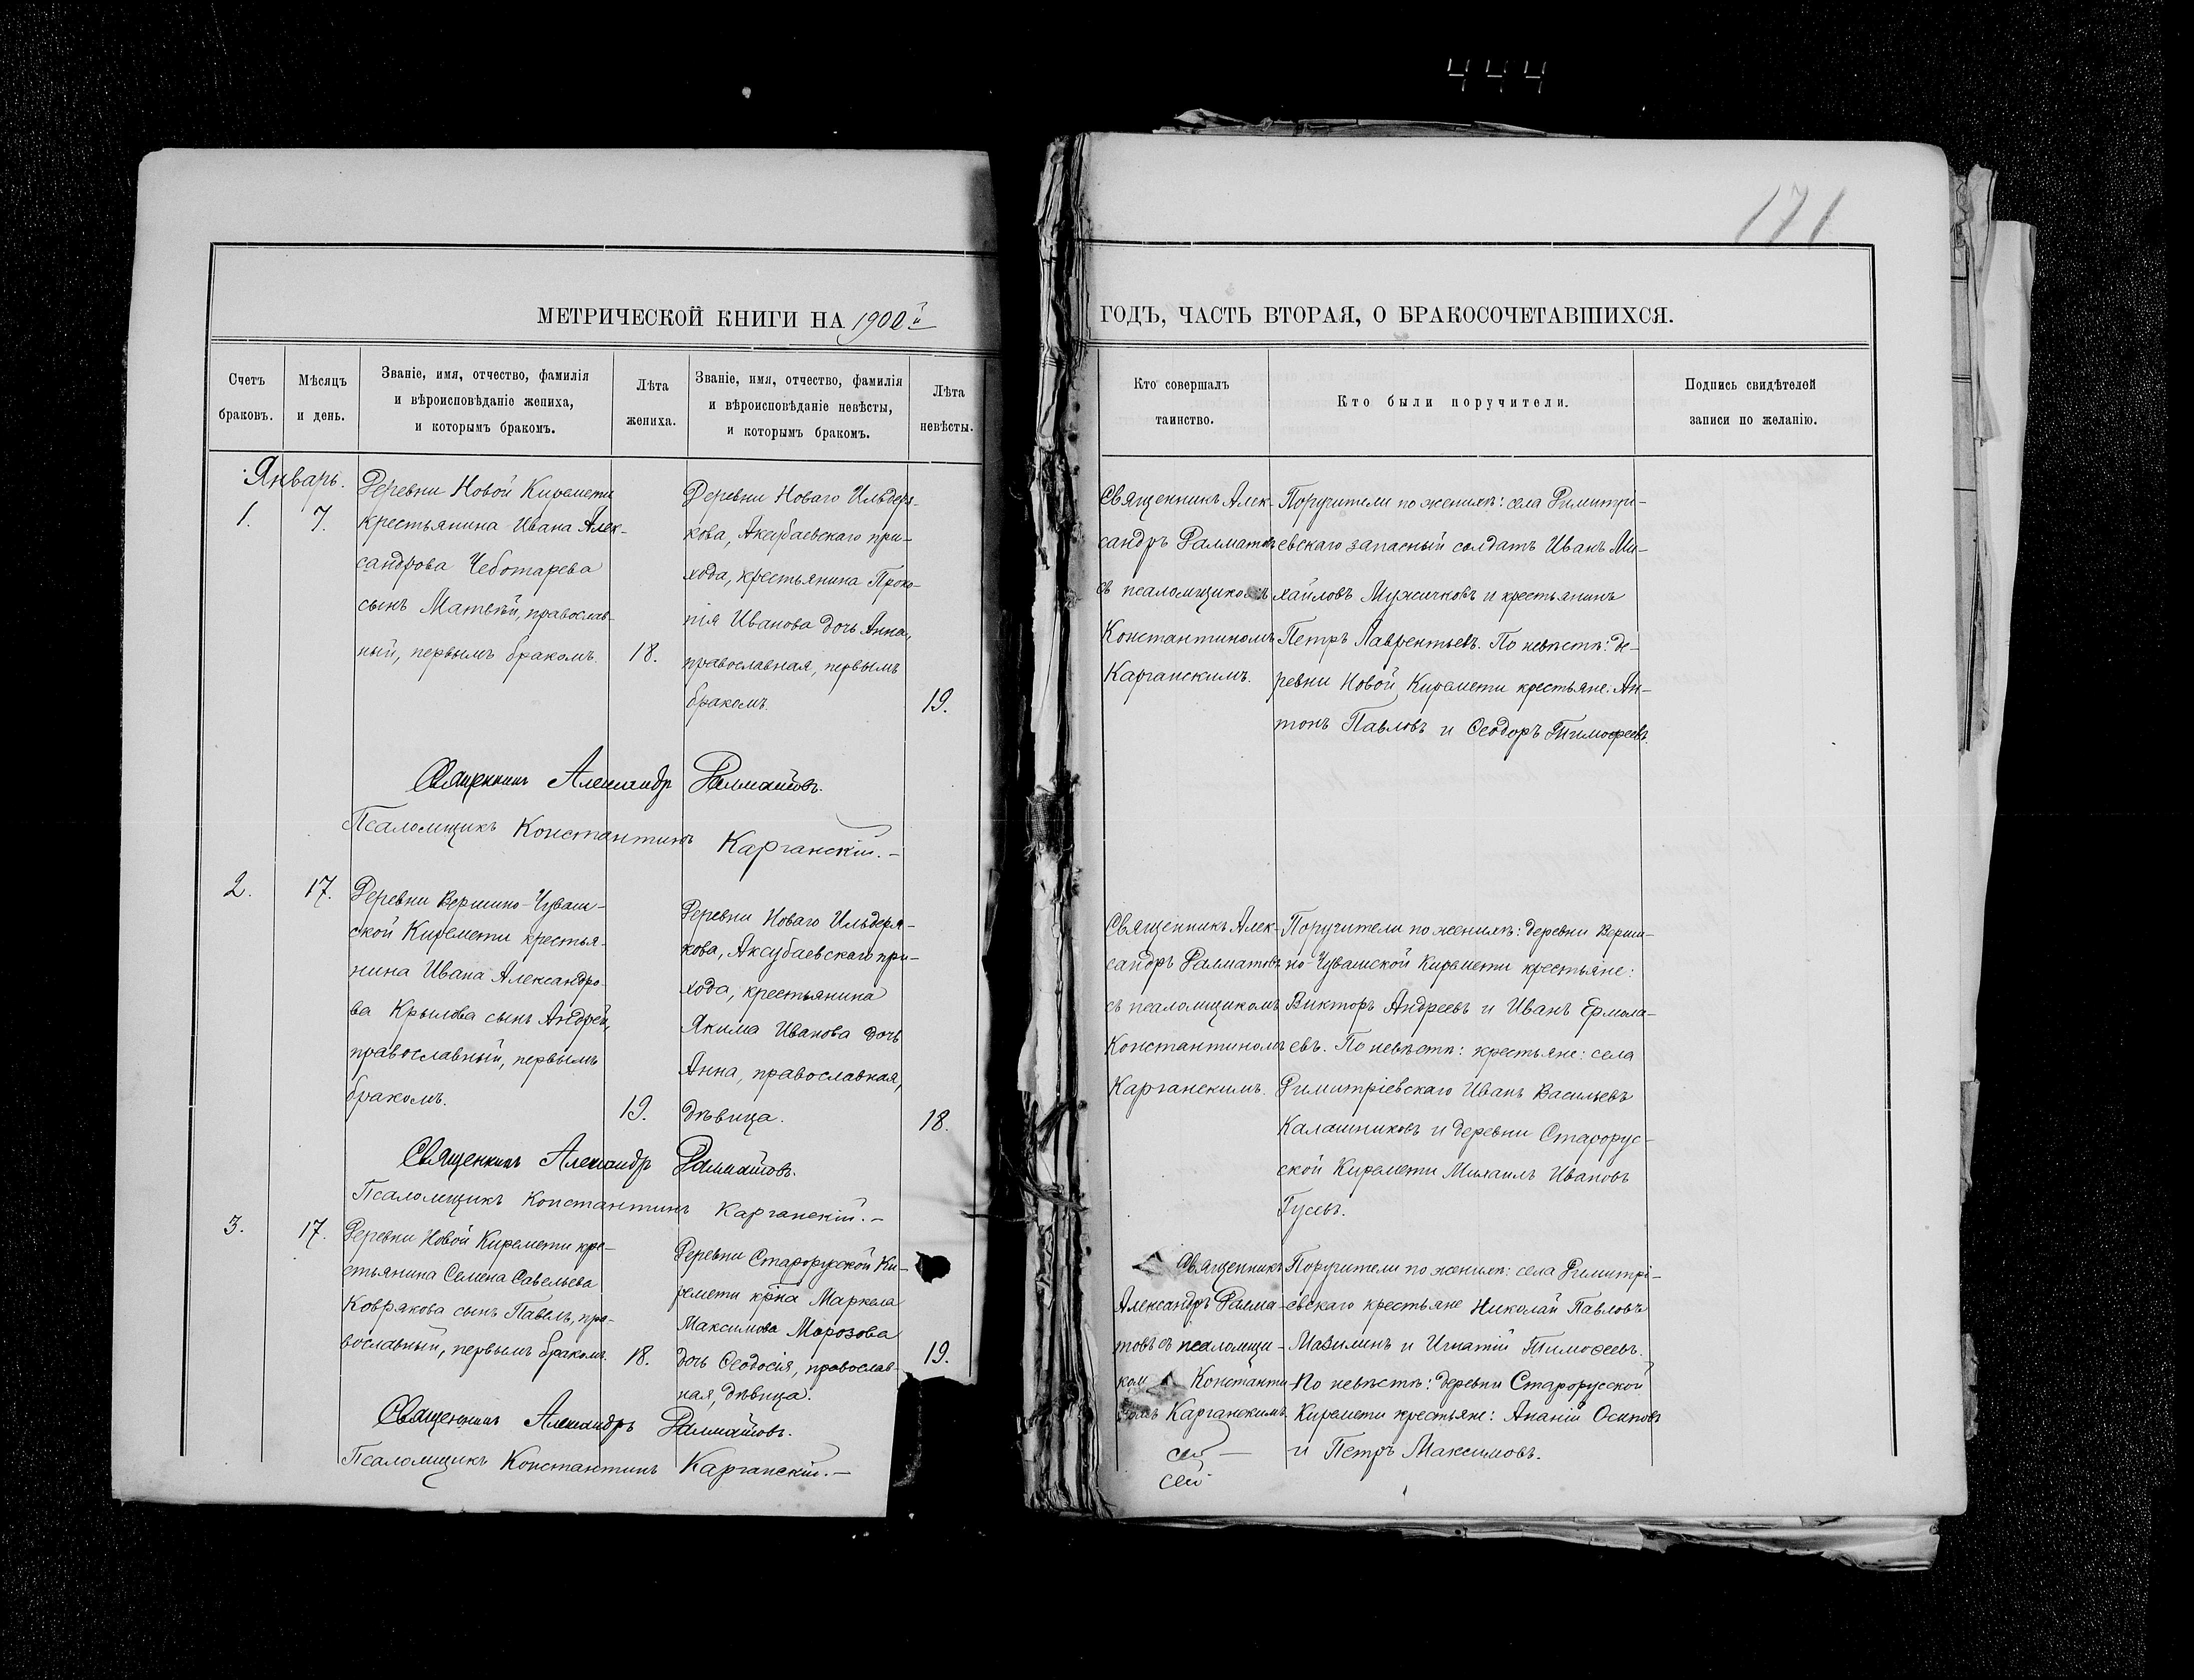 444
171
МЕТРИЧЕСКОЙ КНИГИ НА 1900й
ГОДЪ, ЧАСТЬ ВТОРАЯ, О БРАКОСОЧЕТАВШИХСЯ.
Счетъ
браковъ.
Мѣсяцъ
и день.
Званіе, имя, отчество, фамилія
и вѣроисповѣданіе жениха,
и которымъ бракомъ.
Лѣта
жениха.
Званіе, имя, отчество, фамилія
и вѣроисповѣданіе невѣсты,
и которымъ бракомъ.
Лѣта
невѣсты.
Кто совершалъ
таинство.
Кто были поручители.
Подпись свидѣтелей
записи по желанію.
Январь.
1.
7.
Деревни Новой Киремети
крестьянина Ивана Алек-
сандрова Чеботарева
сынъ Матвѣй, православ-
ный, первымъ бракомъ.
18.
Деревни Новаго Ильдеря-
кова, Аксубаевскаго при-
хода, крестьянина Проко-
пія Иванова дочь Анна,
православная, первымъ
бракомъ.
19.
Священникъ Алек-
сандръ Ралматовъ
съ псаломщикомъ
Константиномъ
Карганскимъ.
Поручители по женихѣ: села Димитрі-
евскаго запасный солдатъ Иванъ Ми-
хайловъ Мужичковъ и крестьянинъ
Петръ Лаврентьевъ. По невѣстѣ: де-
ревни Новой Киремети крестьяне: Ан-
тонъ Павловъ и Ѳеодоръ Тимофеевъ.
Священникъ Александр Ралматовъ.
Псаломщикъ Константинъ Карганскій.-
2.
17.
Деревни Вершино-Чуваш-
ской Киремети крестья-
нина Ивана Александро-
ва Крылова сынъ Андрей,
православный, первымъ
бракомъ.
19.
Деревни Новаго Ильдеря-
кова, Аксубаевскаго при-
хода, крестьянина
Якима Иванова дочь
Анна, православная,
дѣвица.
18.
Священникъ Алек-
сандръ Ралматовъ
съ псаломщикомъ
Константиномъ
Карганскимъ.
Поручители по женихѣ: деревни Верши-
но-Чувашской Киремети крестьяне:
Викторъ Андреевъ и Иванъ Ермола-
евъ. По невѣстѣ: крестьяне: села
Димитріевскаго Иванъ Васильевъ
Калашниковъ и деревни Старорус-
ской Киремети Михаилъ Ивановъ
Гусевъ.
Священникъ Александр Ралматовъ.
Псаломщикъ Константинъ Карганскій.-
3.
17.
Деревни Новой Киремети кре-
стьянина Семена Савельева
Коврякова сынъ Павелъ, пра-
вославный, первымъ бракомъ.
18.
Деревни Старорусской Ки-
ремети кр̃на Маркела
Максимова Морозова
дочь Ѳеодосія, православ-
ная, дѣвица.
19.
Священникъ
Александръ Ралма-
товъ съ псаломщи-
ком Константи-
номъ Карганскимъ
сей
сей
Поручители по женихѣ: села Димитрі-
евскаго крестьяне Николай Павловъ
и Игнатій Тимоѳеевъ.
По невѣстѣ: деревни Старорусской
Киремети крестьяне: Ананій Осиповъ
и Петръ Максимовъ.
Священникъ Александръ Ралматовъ.
Псаломщикъ Константинъ Карганскій.-